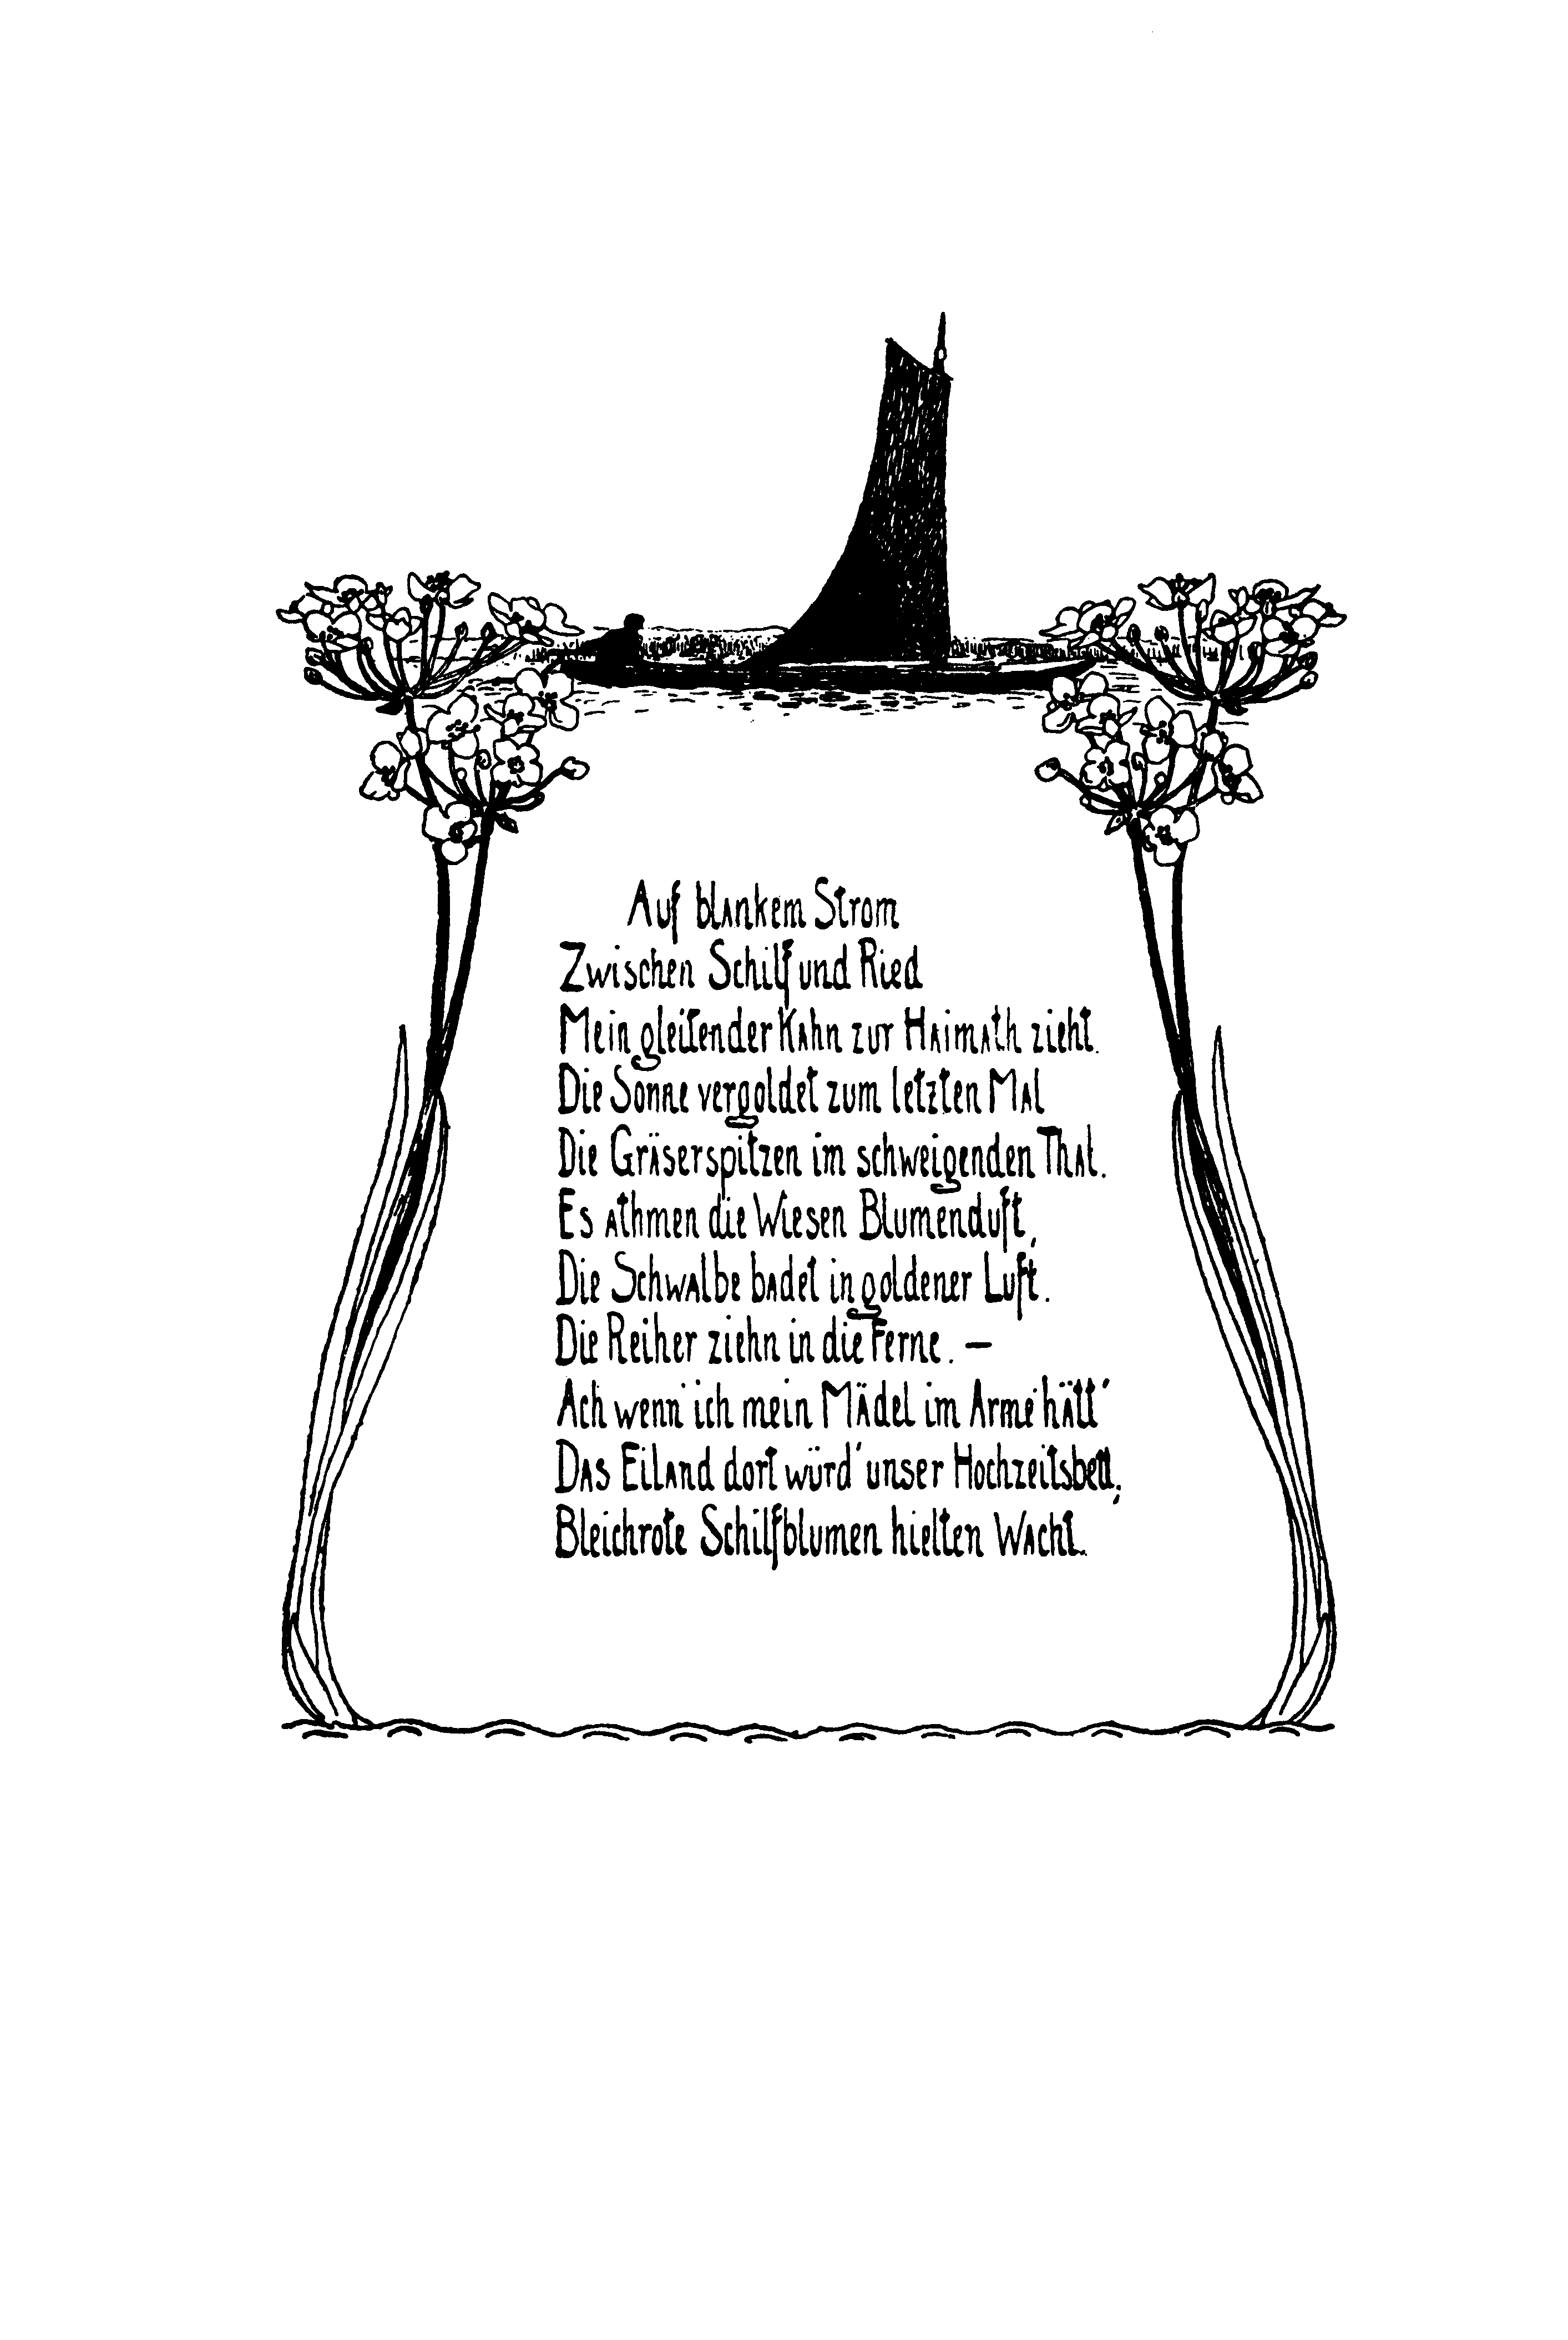 Auf blankem Strom
Zwischen Schilf und Ried
Mein gleitender Kahn zur Haimath zieht.
Die Sonne vergoldet zum letzten Mal
Die Gräserspitzen im schweigenden Thal.
Es athmen die Wiesen Blumenduft,
Die Schwalbe badet in goldener Luft.
Die Reiher ziehn in die Ferne. —
Ach wenn ich mein Mädel im Arme hätt'
Das Eiland dort würd' unser Hochzeitsbett;
Bleichrote Schilfblumen hielten Wacht.